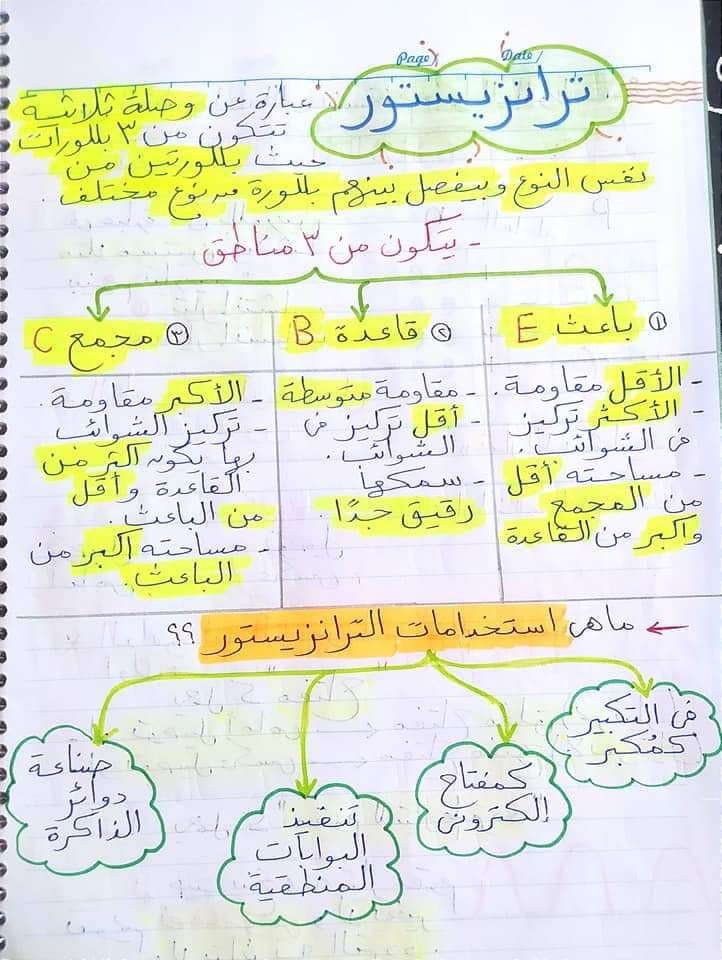 Page Date
ترانزيستور
عبارة عن وصلة ثلاثية
تتكون من ٣ بللورات
حيث بللورتين من
نفس النوع وبيفصل بينهم بللورة من نوع مختلف .
- يتكون من ٣ مناطق
① باعث E
② قاعدة B
③ مجمع C
- الأقل مقاومة .
- الأكثر تركيز
فى الشوائب .
- مساحته أقل
من المجمع
واكبر من القاعدة
- مقاومة متوسطة
- أقل تركيز فى
الشوائب .
- سمكها
رقيق جدًا
- الأكبر مقاومة .
- تركيز الشوائب
بها يكون أكثر من
القاعدة وأقل
من الباعث .
- مساحته اكبر من
الباعث .
← ماهى استخدامات الترانزيستور ؟؟
فى التكبير
كمُكبر
كمفتاح
الكترونى
تنفيذ
البوابات
المنطقية
صناعة
دوائر
الذاكرة